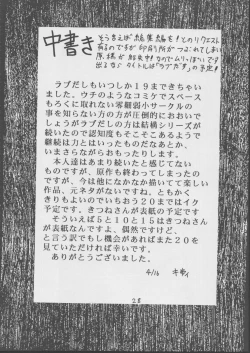 中書き
そういえば総集編を!とのリクエスト
あるのですが印刷所がつぶれてしまい
原稿が紛失中なのでムリっぽいです
出るならタイトルは「ラブだす」の予定!
ラブだしもいつしか19まできちゃい
ました。ウチのようなコミケでスペース
もろくに取れない零細弱小サークルの
事を知らない方の方が圧倒的におおいで
しょうがラブだしの方は結構シリーズが
続いたので認知度もそこそこあるようで
継続は力とはいったものだなあとか、
いまさらながらおもったりします。
本人達はあまり続いたと感じてない
ものですが、原作も終わってしまったの
ですが、今は他になかなか描いてて楽しい
作品、元ネタがないですね、ともかく
きりもよいのでいちおう20まではイク
予定です。きつねさんが表紙の予定です
そういえば5と10と15はきつねさん
が表紙なんですよ、偶然ですけど、
と言う訳でもし機会があればまた20を
見ていただければ幸いです。
ありがとうございました。
4/16
28